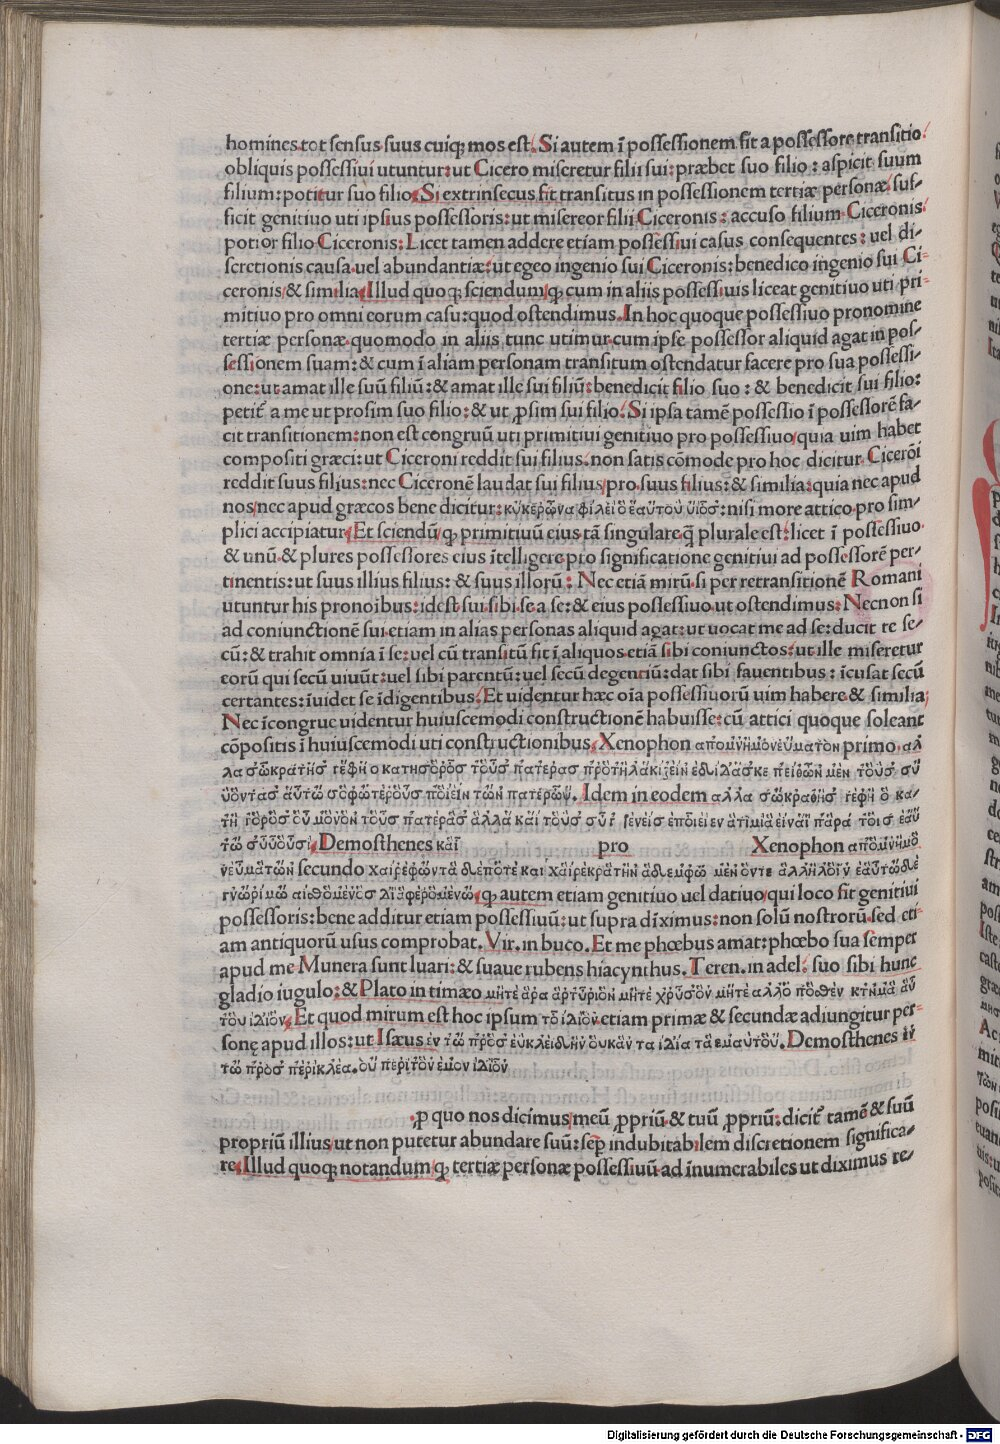 homines tot sensus suus cuiqꝫ mos est. Si autem ī possessionem fit a possessore transitio
obliquis possessiui utuntur: ut Cicero miseretur filii sui: præbet suo filio: aspicit suum
filium: potitur suo filio. Si extrinsecus fit transitus in possessionem tertiæ personæ. suf-
ficit genitiuo uti ipsius possessoris: ut misereor filii Ciceronis: accuso filium Ciceronis:
potior filio Ciceronis: Licet tamen addere etiam possessiui casus consequentes: uel di-
scretionis causa uel abundantiæ: ut egeo ingenio sui Ciceronis: benedico ingenio sui Ci-
ceronis/ & similia. Illud quoqꝫ sciendum/ ꝙ cum in aliis possessiuis liceat genitiuo uti pri-
mitiuo pro omni eorum casu: quod ostendimus. In hoc quoque possessiuo pronomine
tertiæ personæ. quomodo in aliis tunc utimur. cum ipse possessor aliquid agat in pos-
sessionem suam: & cum ī aliam personam transitum ostendatur facere pro sua possessi-
one: ut amat ille suū filiū: & amat ille sui filiū: benedicit filio suo: & benedicit sui filio:
petit̄ a me ut prosim suo filio: & ut ꝓsim sui filio. Si ipsa tamē possessio ī possessorē fa-
cit transitionem: non est congruū uti primitiui genitiuo pro possessiuo/ quia uim habet
compositi græci: ut Ciceroni reddit sui filius. non satis cōmode pro hoc dicitur. Cicerōi
reddit suus filius: nec Ciceronē laudat sui filius/ pro. suus filius: & similia: quia nec apud
nos/ nec apud græcos bene dicitur: κυκερῶνα φιλεὶ ὁ ἑαὐτοὺ ὑἱὸσ: nisi more attico pro sim-
plici accipiatur. Et sciendū/ ꝙ primitiuū eius tā singulare qꝫ plurale est: licet ī possessiuo.
& unū. & plures possessores eius ītelligere pro significatione genitiui ad possessorē per-
tinentis: ut suus illius filius: & suus illorū: Nec etiā mirū. si per retransitionē Romani
utuntur his pronoībus: idest sui. sibi. se. a se: & eius possessiuo. ut ostendimus: Necnon si
ad coniunctionē sui etiam in alias personas aliquid agat: ut uocat me ad se: ducit te se-
cū: & trahit omnia ī se: uel cū transitū fit ī aliquos etiā sibi coniunctos: ut ille miseretur
eorū qui secū uiuūt: uel sibi parentū: uel secū degentiū: dat sibi fauentibus: īcusat secū
certantes: īuidet se īdigentibus. Et uidentur hæc oīa possessiuorū uim habere. & similia;
Nec īcongrue uidentur huiuscemodi constructionē habuisse: cū attici quoque soleant
cōpositis ī huiuscemodi uti constructionibus. Xenophon ἀπομνημονεύματον primo. ἀλ
λα σωκράτησ γεφη ο κατησορὸσ τοὺσ πατερασ προτηλακιζεὶν ἐδιδασκε πειθων μεν τοὺσ σὺ
ὑοντασ ἁὐτω σοφωτεροὺσ ποιεὶν των πατερων. Idem in eodem αλλα σωκραθησ γεφη ὁ κα-
τη γοροσ οὐ μονον τοὺσ πατερασ ἀλλα καὶ τοὺσ συγ γενεὶσ ἐποιει εν ατιμια εἰναὶ παρα τοισ ἑαὐ
τω συὐοὺσι. Demosthenes καὶ pro Xenophon ἀπομνημο
νευματων secundo χαιρεφωντα δε ποτε καὶ χαιρεκρατην ἀδελφω μεν οντε ἀλληλοὶν ἑαὐτωδε
γνωριμω αιθομενοσ διαφερομενω. ꝙ autem etiam genitiuo uel datiuo/ qui loco fit genitiui
possessoris: bene additur etiam possessiuū: ut supra diximus: non solū nostrorū. sed eti-
am antiquorū usus comprobat. Vir. in buco. Et me phœbus amat: phœbo sua semper
apud me Munera sunt luari: & suaue rubens hiacynthus. Teren. in adel. suo sibi hunc
gladio iugulo: & Plato in timæo μητε ἀρα ἀρτὺριον μητε χρὺσον μητε αλλο ποθεν κτημα αὐ
τοὺ ιδιον. Et quod mirum est hoc ipsum τὸ ιδιον etiam primæ & secundæ adiungitur per-
sonę apud illos: ut Isæus ἐν τω προσ εὐκλειδην οὐκαν τα ιδια τα ἐμαυτοὺ. Demosthenes ἰ
τω προσ περικλεα. οὐ περιτον ἐμον ιδιον
.ꝓ quo nos dicimus/ meū ꝓpriū. & tuū ꝓpriū: dicit̄ tamē & suū
propriū illius/ ut non putetur abundare suū: sep̄ indubitabilem discretionem significa-
re. Illud quoqꝫ notandum/ ꝙ tertiæ personæ possessiuū ad īnumerabiles ut diximus re-
Digitalisierung gefördert durch die Deutsche Forschungsgemeinschaft - DFG